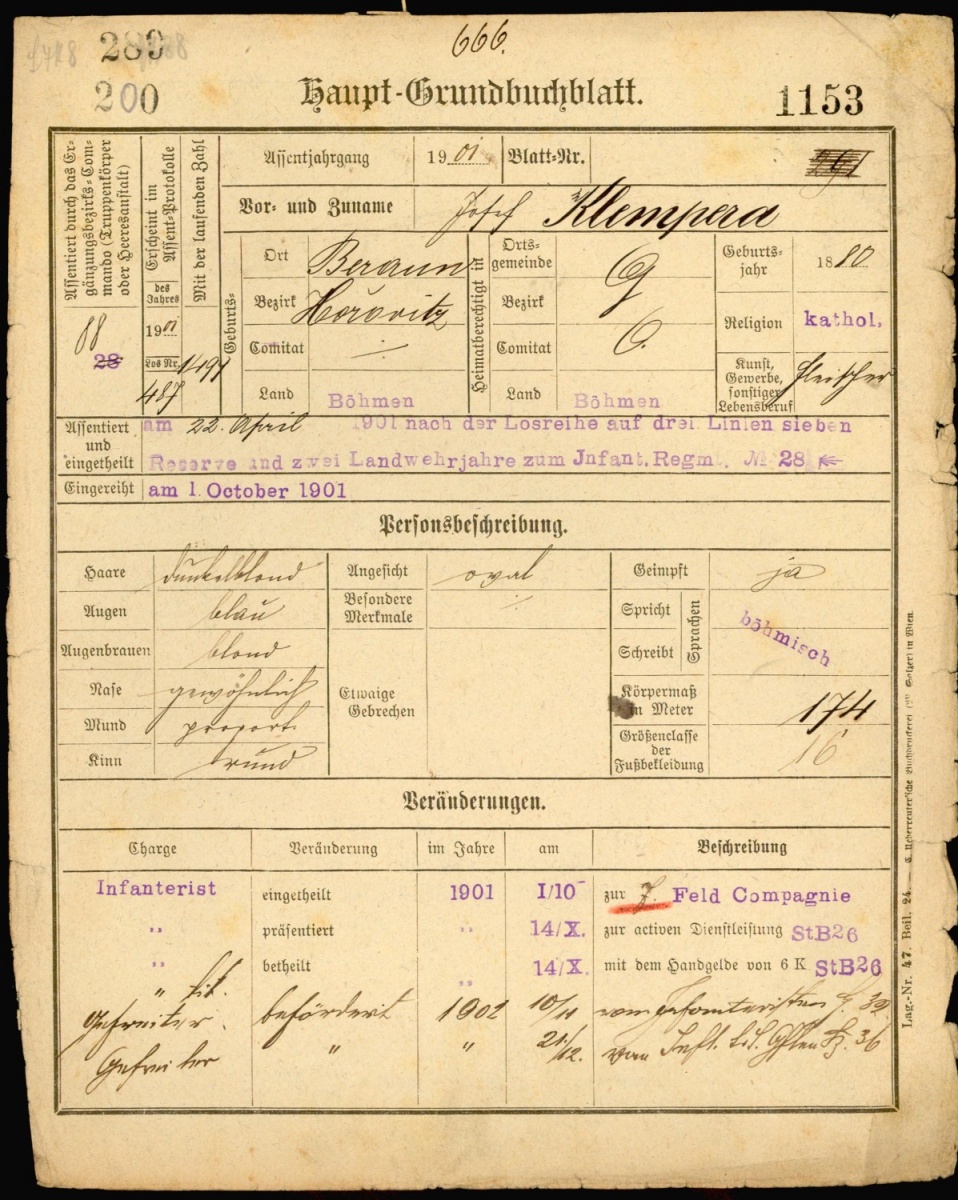 289
666.
200
Haupt-Grundbuchblatt.
1153
Assentiert durch das Er-
gänzungsbezirks-Com-
mando (Truppenkörper
oder Heeresanstalt)
88
28
Erscheint im
Assent-Protokolle
des
Jahres
1901
Los Nr.
487
Mit der laufenden Zahl
Assentjahrgang
1901
Blatt-Nr.
Vor- und Zuname
Josef Klempera
Geburts-
Ort
Beraun
Bezirk
Hořovitz
Comitat
Land
Böhmen
Heimatberechtigt in
Orts-
gemeinde
Bezirk
Comitat
Land
Böhmen
Geburts-
jahr
1880
Religion
kathol.
Kunst,
Gewerbe,
sonstiger
Lebensberuf
Fleischer
Assentiert
und
eingetheilt
am 22. April 1901 nach der Losreihe auf drei Linien sieben
Reserve und zwei Landwehrjahre zum Jnfant. Regmt. № 28
Eingereiht
am 1. October 1901
Personsbeschreibung.
Haare
dunkelblond
Augen
blau
Augenbrauen
blond
Nase
gewöhnlich
Mund
proport.
Kinn
rund
Angesicht
oval
Besondere
Merkmale
Etwaige
Gebrechen
Geimpft
ja
Spricht
Schreibt
Sprachen
böhmisch
Körpermaß
in Meter
174
Größenclasse
der
Fußbekleidung
16
Veränderungen.
Charge Veränderung im Jahre am Beschreibung
Infanterist eingetheilt 1901 1/10 zur 7. Feld Compagnie
" präsentiert " 14/X. zur activen Dienstleistung StB26
" betheilt " 14/X. mit dem Handgelde von 6 K StB26
" tit.
Gefreiter. befördert 1902 10/11 vom
Gefreiter " " 21/12. vom Inft. tit. 36
Lag.-Nr. 47. Beil. 24. — C. Ueberreuter'sche Buchdruckerei (M. Salzer) in Wien.